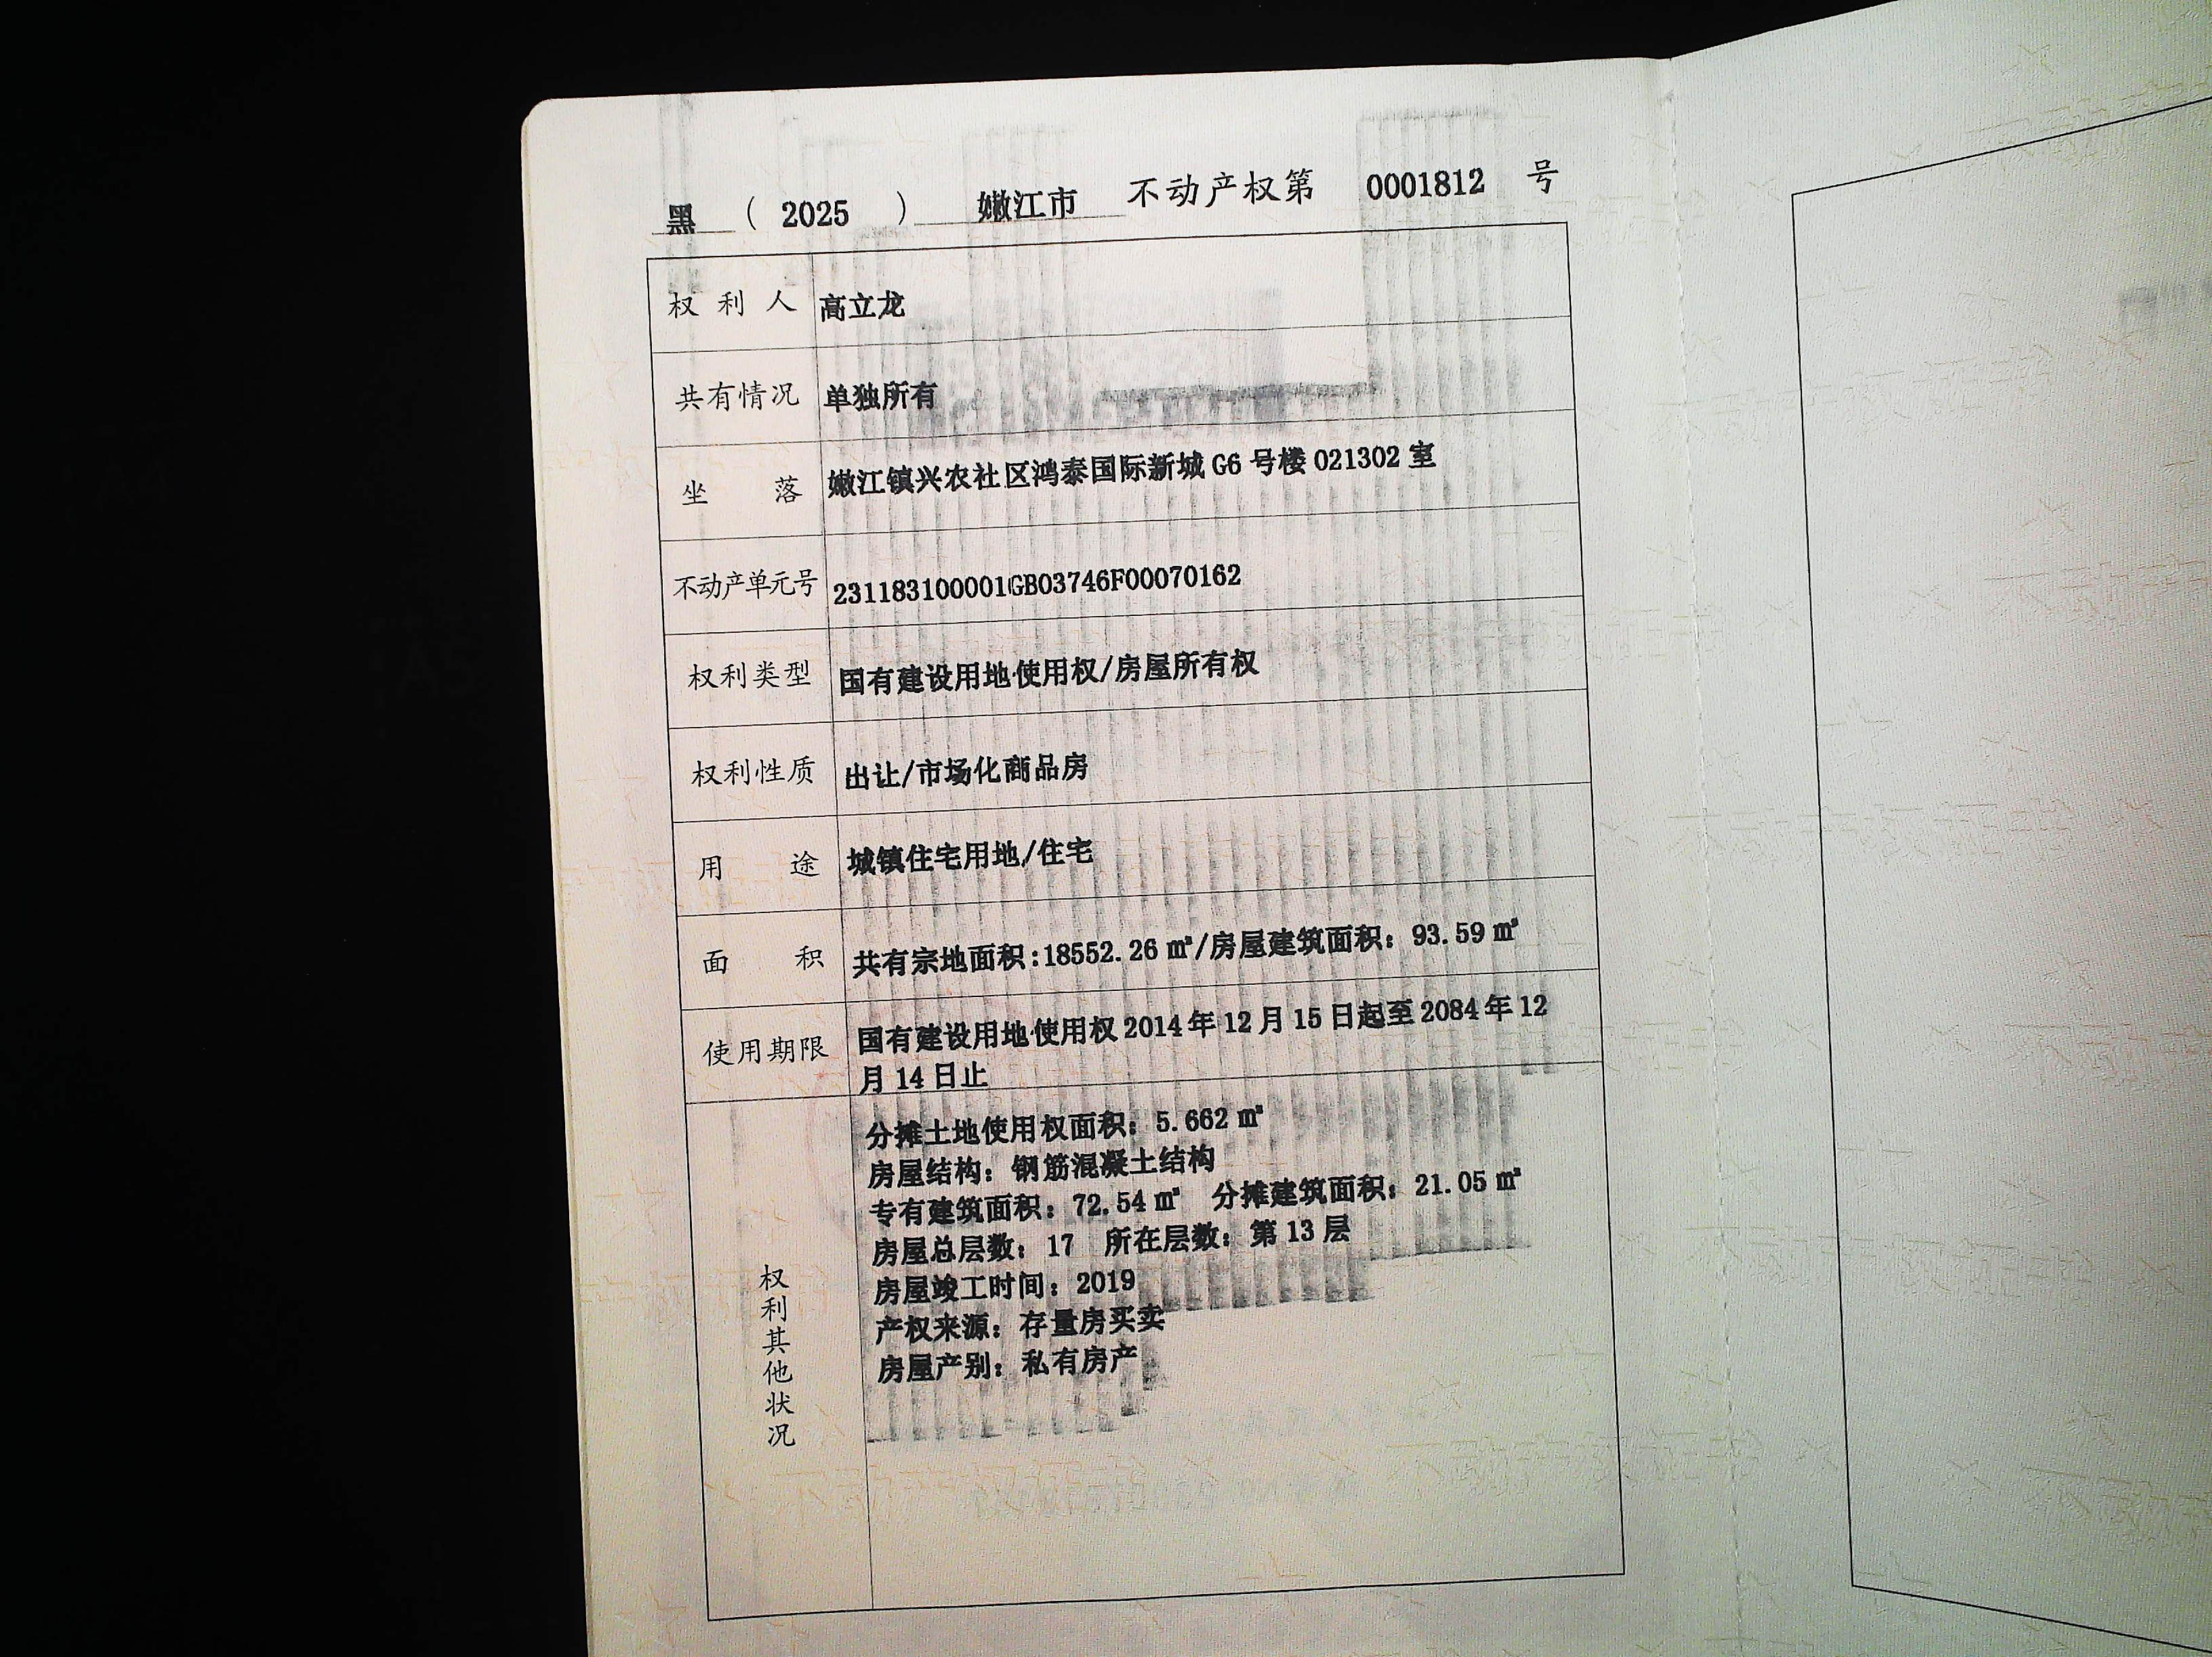 黑 （ 2025 ） 嫩江市 不动产权第 0001812 号
权利人 高立龙
共有情况 单独所有
坐落 嫩江镇兴农社区鸿泰国际新城 G6 号楼 021302 室
不动产单元号 231183100001GB03746F00070162
权利类型 国有建设用地使用权/房屋所有权
权利性质 出让/市场化商品房
用途 城镇住宅用地/住宅
面积 共有宗地面积:18552.26 ㎡/房屋建筑面积：93.59 ㎡
使用期限 国有建设用地使用权 2014 年 12 月 15 日起至 2084 年 12
月 14 日止
权利其他状况
分摊土地使用权面积：5.662 ㎡
房屋结构：钢筋混凝土结构
专有建筑面积：72.54 ㎡ 分摊建筑面积：21.05 ㎡
房屋总层数：17 所在层数：第 13 层
房屋竣工时间：2019
产权来源：存量房买卖
房屋产别：私有房产